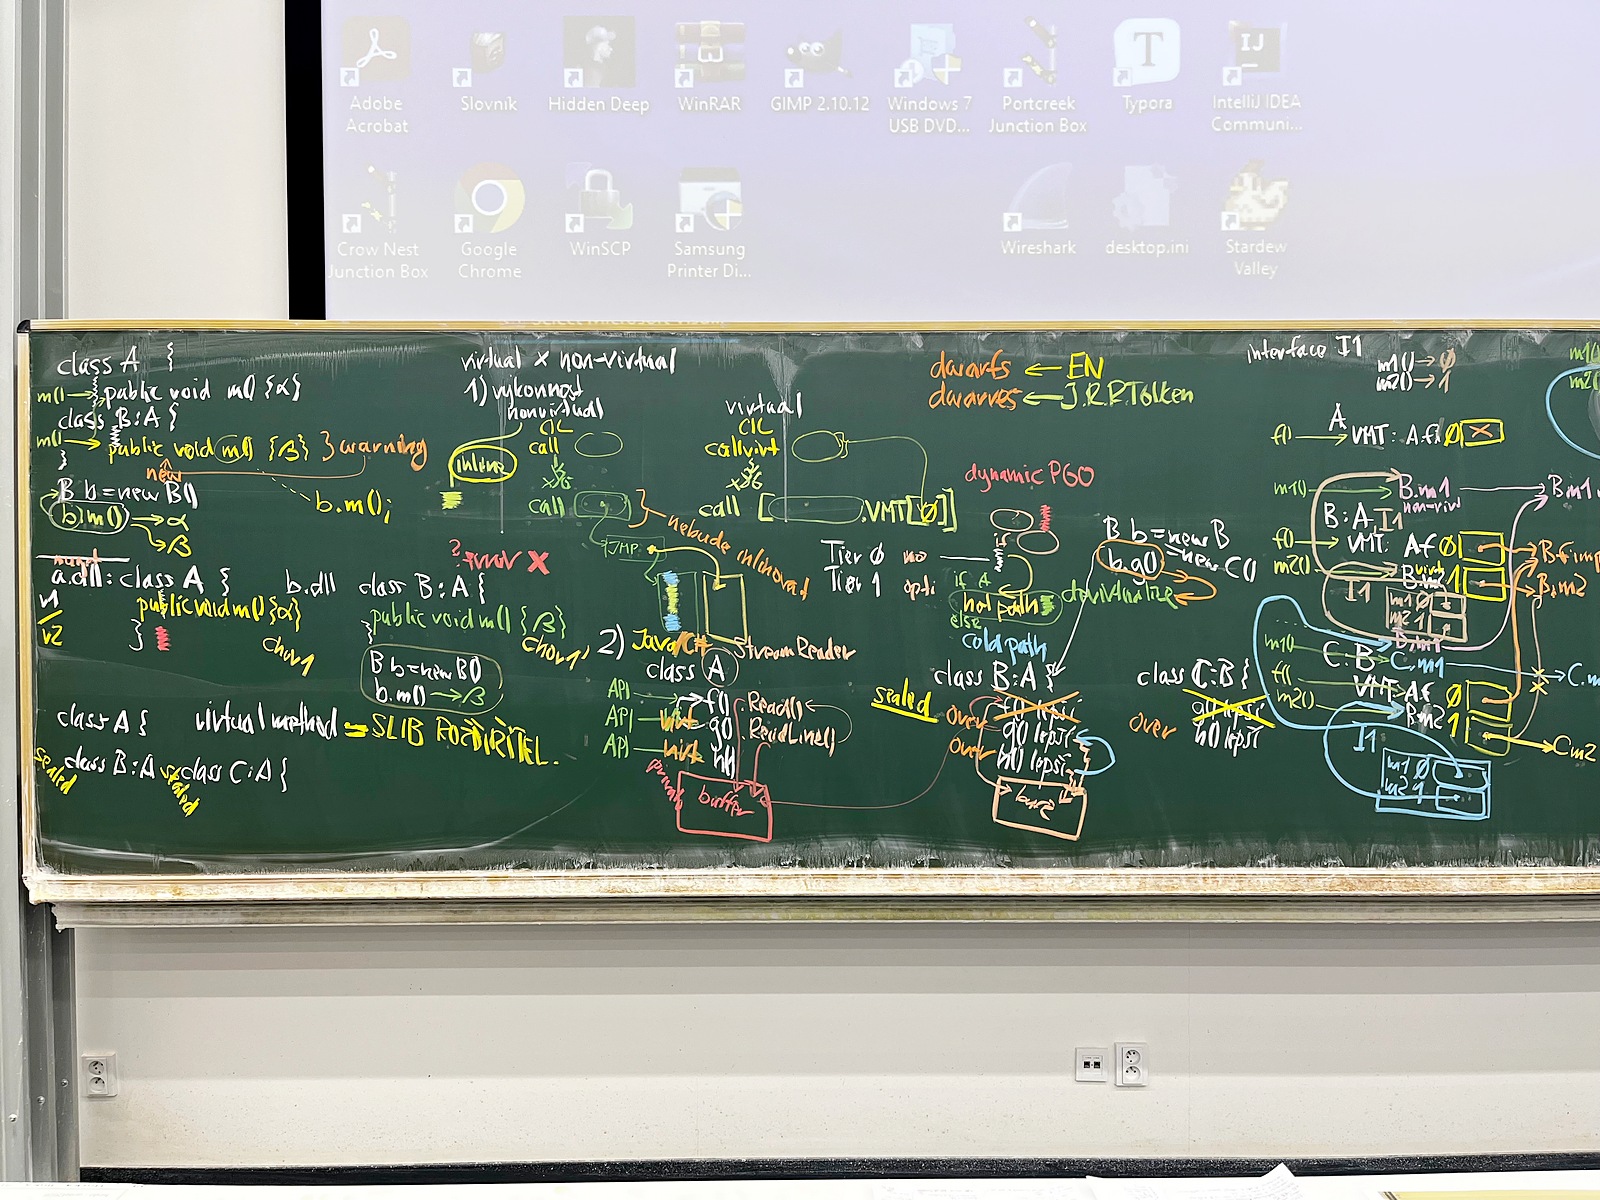 Adobe Acrobat
Slovník
Hidden Deep
WinRAR
GIMP 2.10.12
Windows 7 USB DVD...
Portcreek Junction Box
Typora
IntelliJ IDEA Communi...
Crow Nest Junction Box
Google Chrome
WinSCP
Samsung Printer Di...
Wireshark
desktop.ini
Stardew Valley
class A {
m() → public void m() {α}
class B:A {
m() → public void m() {β} } warning
}
new
B b = new B()
b.m() → α
→ β
b.m();
a.dll: class A {
v1
public void m() {α}
v2
}
b.dll class B:A {
public void m() {β}
}
B b = new B()
b.m() → β
class A {
virtual method = SLIB
class B:A
class C:A {
sealed
sealed
virtual x non-virtual
1) výkonnost
nonvirtual
CIL
call
inline
call
JMP
nebude inlinovat
virtual
CIL
callvirt
call [ .VMT[0]]
2) Java/C#
StreamReader
class A
API f() Read()
API virt g() ReadLine()
API virt h()
private
buffer
dwarfs ← EN
dwarves ← J.R.R.Tolken
dynamic PGO
Tier 0 no
Tier 1 opti
if A
hot path
else
cold path
devirtualize
B b = new B
= new C()
b.g()
sealed
class B:A {
f() lepsi
over g() lepsi
over h() lepsi
class C:B {
g() lepsi
over h() lepsi
interface I1
m1() → 0
m2() → 1
A
f() → VMT: A.f 0
m1() → B.m1
non-virt
B:A, I1
f() VMT: A.f 0
m2() 1
B.m2
I1
m1 0
m2 1
m1() C:B C.m1
f() VMT: A.f 0
m2() B.m2 1
C.m2
I1
m1 0
m2 1
m1()
m2()
B.m1